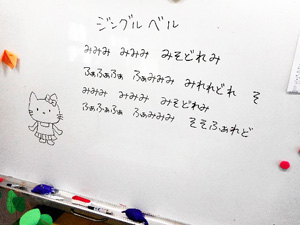 ジングルベル
みみみ みみみ みそどれみ
ふぁふぁふぁ ふぁみみみ みれれどれ そ
みみみ みみみ みそどれみ
ふぁふぁふぁ ふぁみみみ そそふぁれど